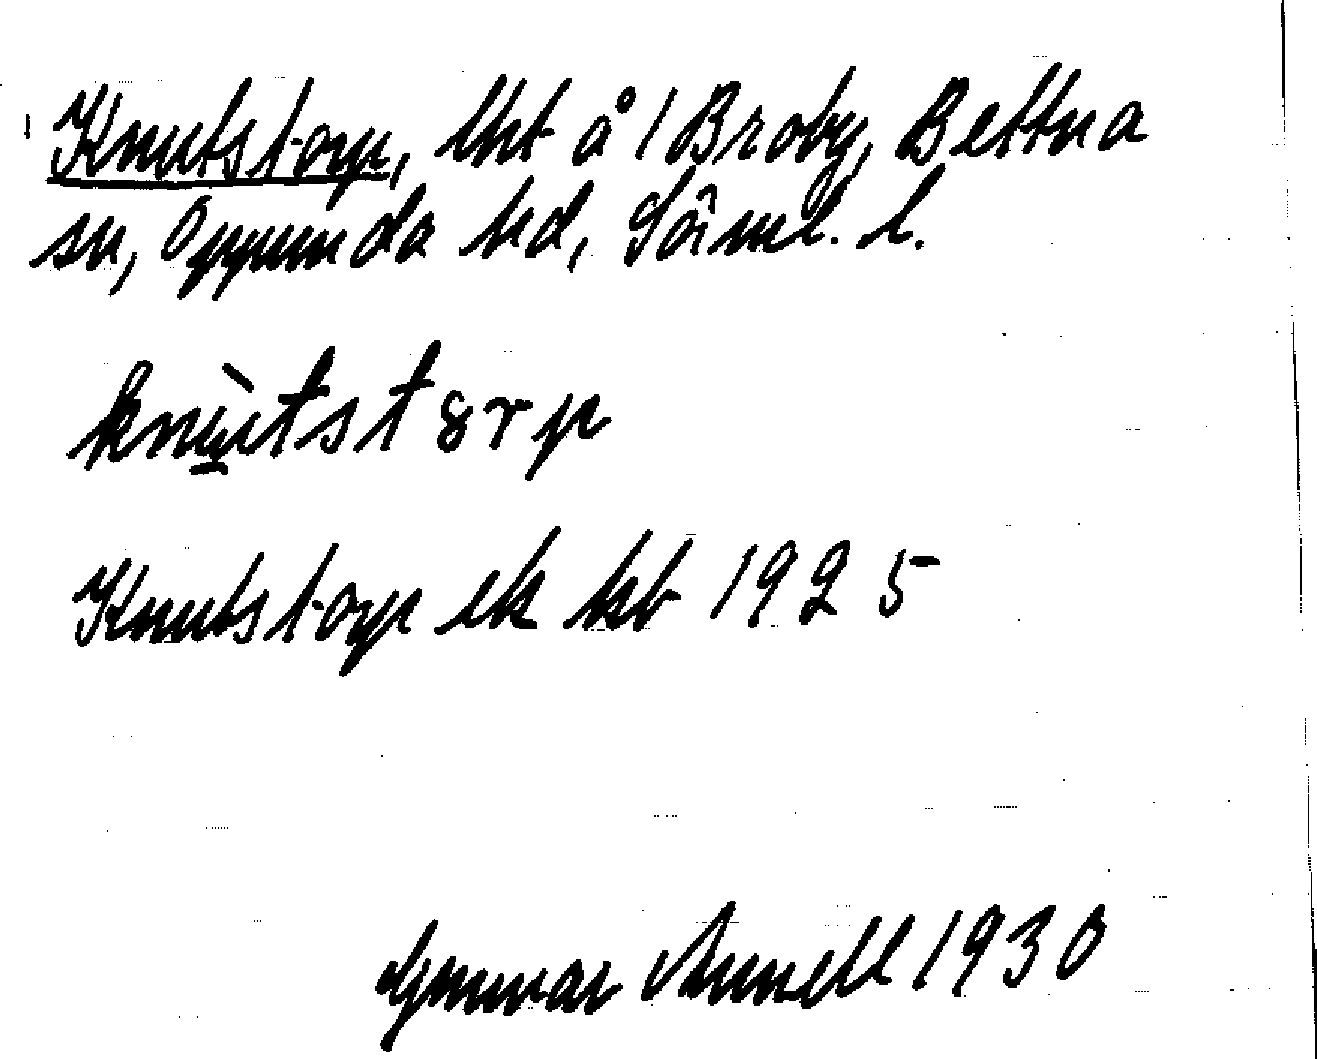 Knutstorp, lht å 1 Broby, Bettna
sn, Oppunda hd, Sörml. l.
knùtstorp
Knutstorp ek kb 1925
Gunvar Annell 1930